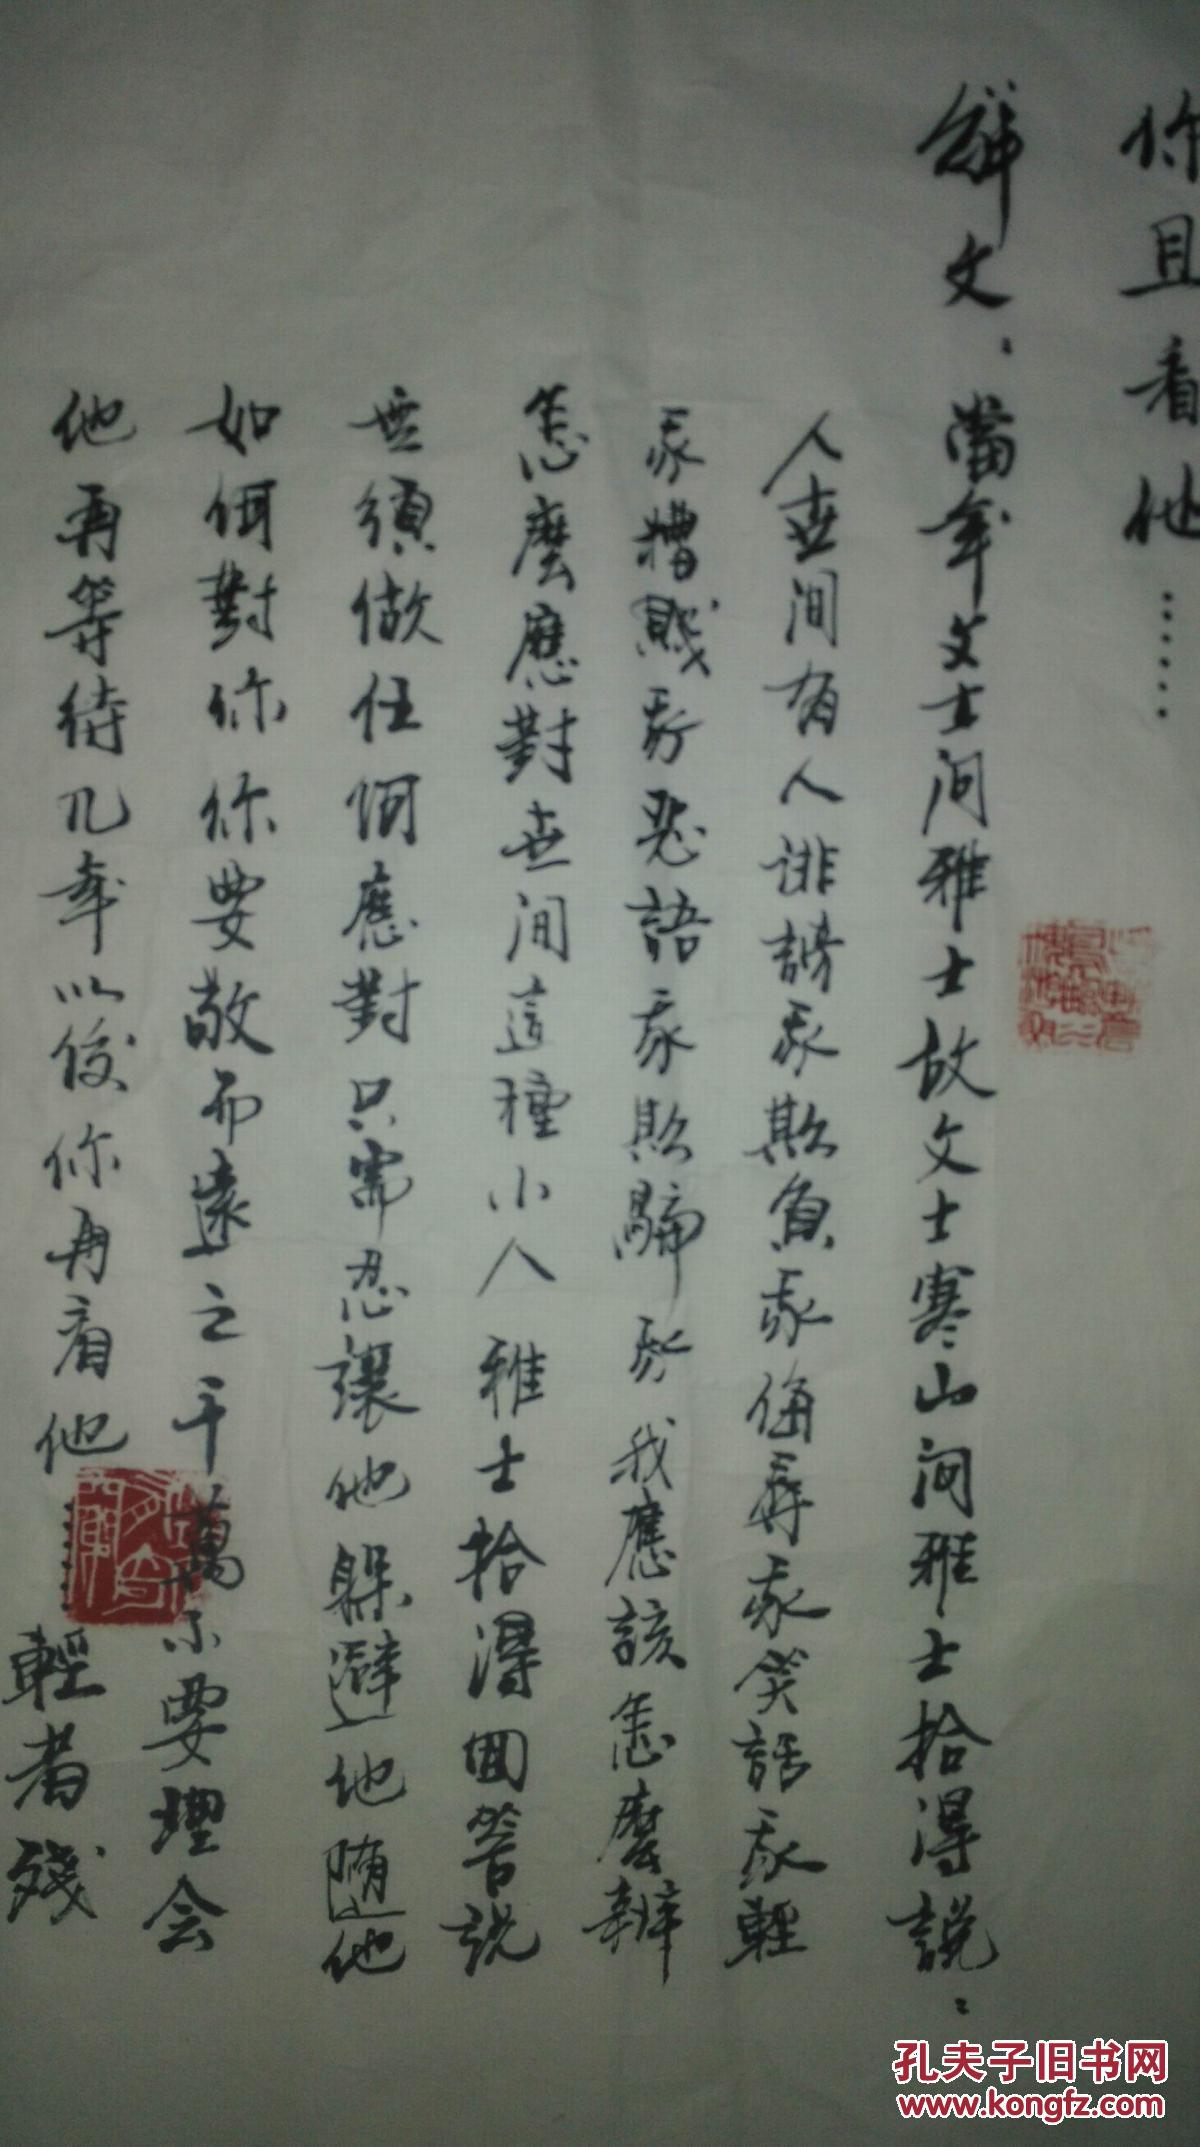 你且看他……
解文：當年文士问雅士故文士寒山问雅士拾得說：
人世间有人诽謗我欺負我侮辱我笑話我輕
我糟賤我惡語我欺騙我我應該怎麼辦
怎麼應對世间這種小人 雅士拾得回答説
無須做任何應對只需忍讓他躲避他随他
如何對你你要敬而遠之千萬不要理会
他再等待几年以後你再看他
輕者殘
孔夫子旧书网
www.kongfz.com